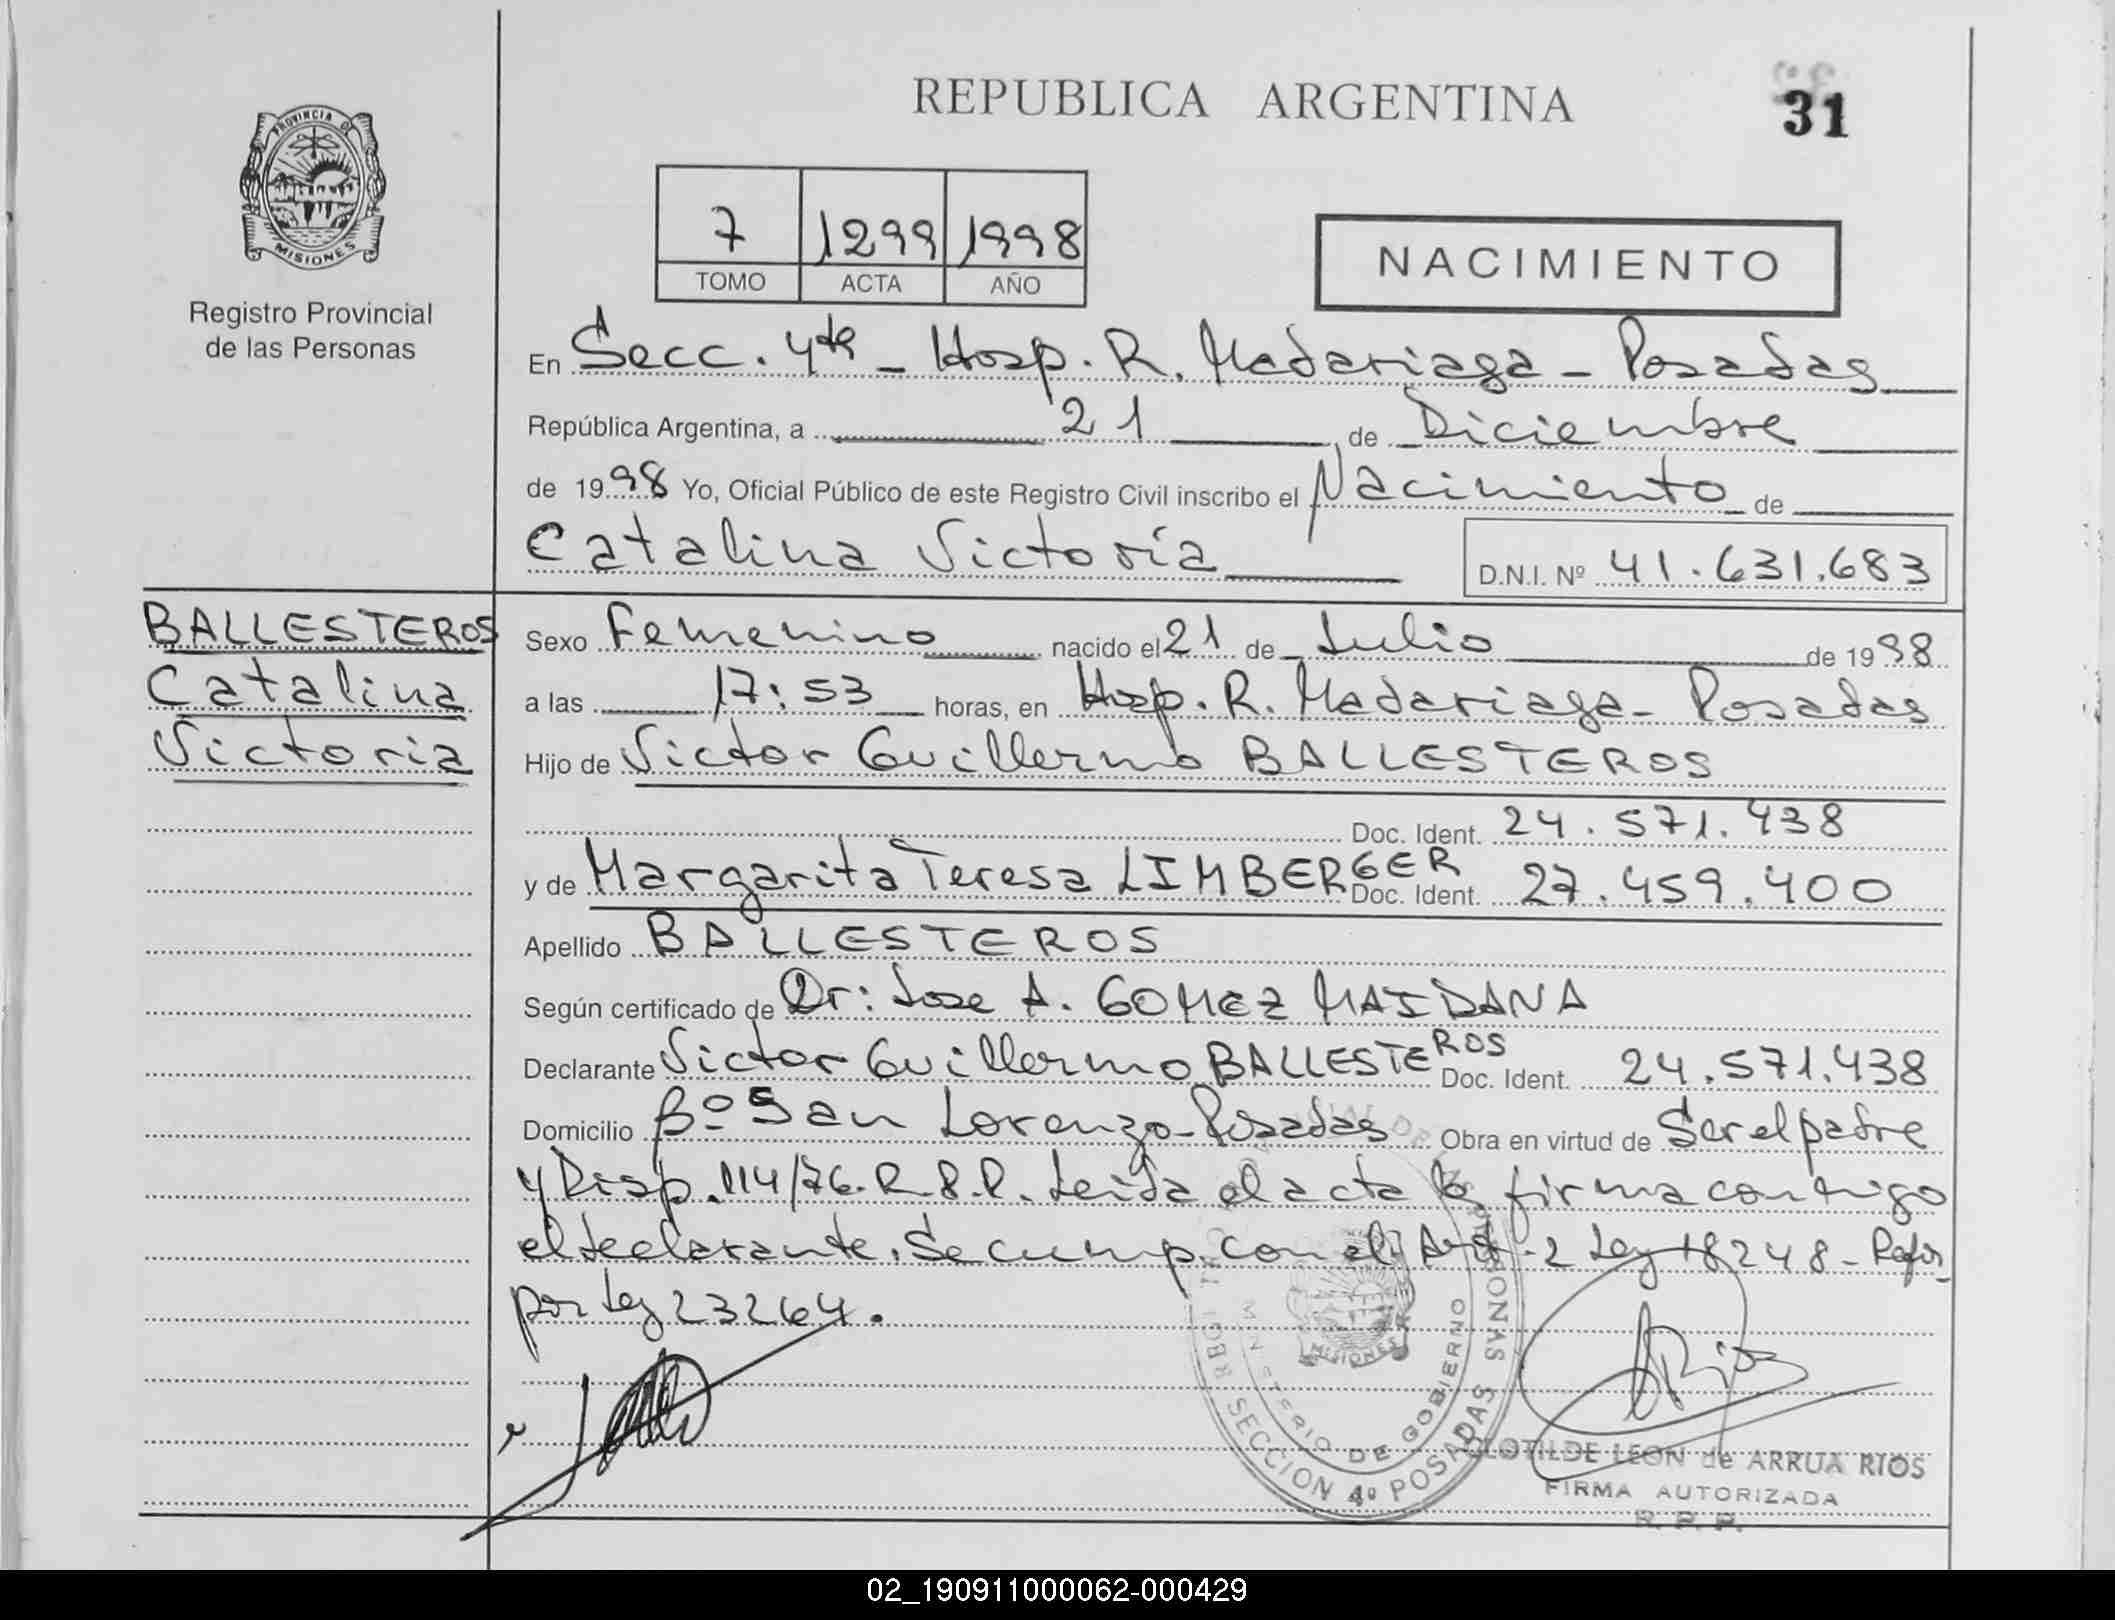 REPUBLICA ARGENTINA
31
PROVINCIA DE
MISIONES
Registro Provincial
de las Personas
7 1299 1998
TOMO ACTA AÑO
NACIMIENTO
En Secc. 4ta - Hosp. R. Madariaga - Posadas
República Argentina, a 21 de Diciembre
de 1998 Yo, Oficial Público de este Registro Civil inscribo el Nacimiento de
Catalina Victoria
D.N.I. Nº 41.631.683
BALLESTEROS
Catalina
Victoria
Sexo Femenino nacido el 21 de Julio de 1998
a las 17:53 horas, en Hosp. R. Madariaga - Posadas
Hijo de Victor Guillermo BALLESTEROS
Doc. Ident. 24.571.438
y de Margarita Teresa LIMBERGER Doc. Ident. 27.459.400
Apellido BALLESTEROS
Según certificado de Dr: Jose A. GOMEZ MAIDANA
Declarante Victor Guillermo BALLESTEROS Doc. Ident. 24.571.438
Domicilio Bº San Lorenzo - Posadas Obra en virtud de Ser el padre
y Disp. 114/76. R.P.P. Leida el acta la firma conmigo
el declarante. Se cump. con el Art. 2 Ley 18248 - Refor
por Ley 23264.
MISIONES
MINISTERIO DE GOBIERNO
SECCION 4º POSADAS
ARios
CLOTILDE LEON de ARRUA RIOS
FIRMA AUTORIZADA
R. P. P.
02_190911000062-000429